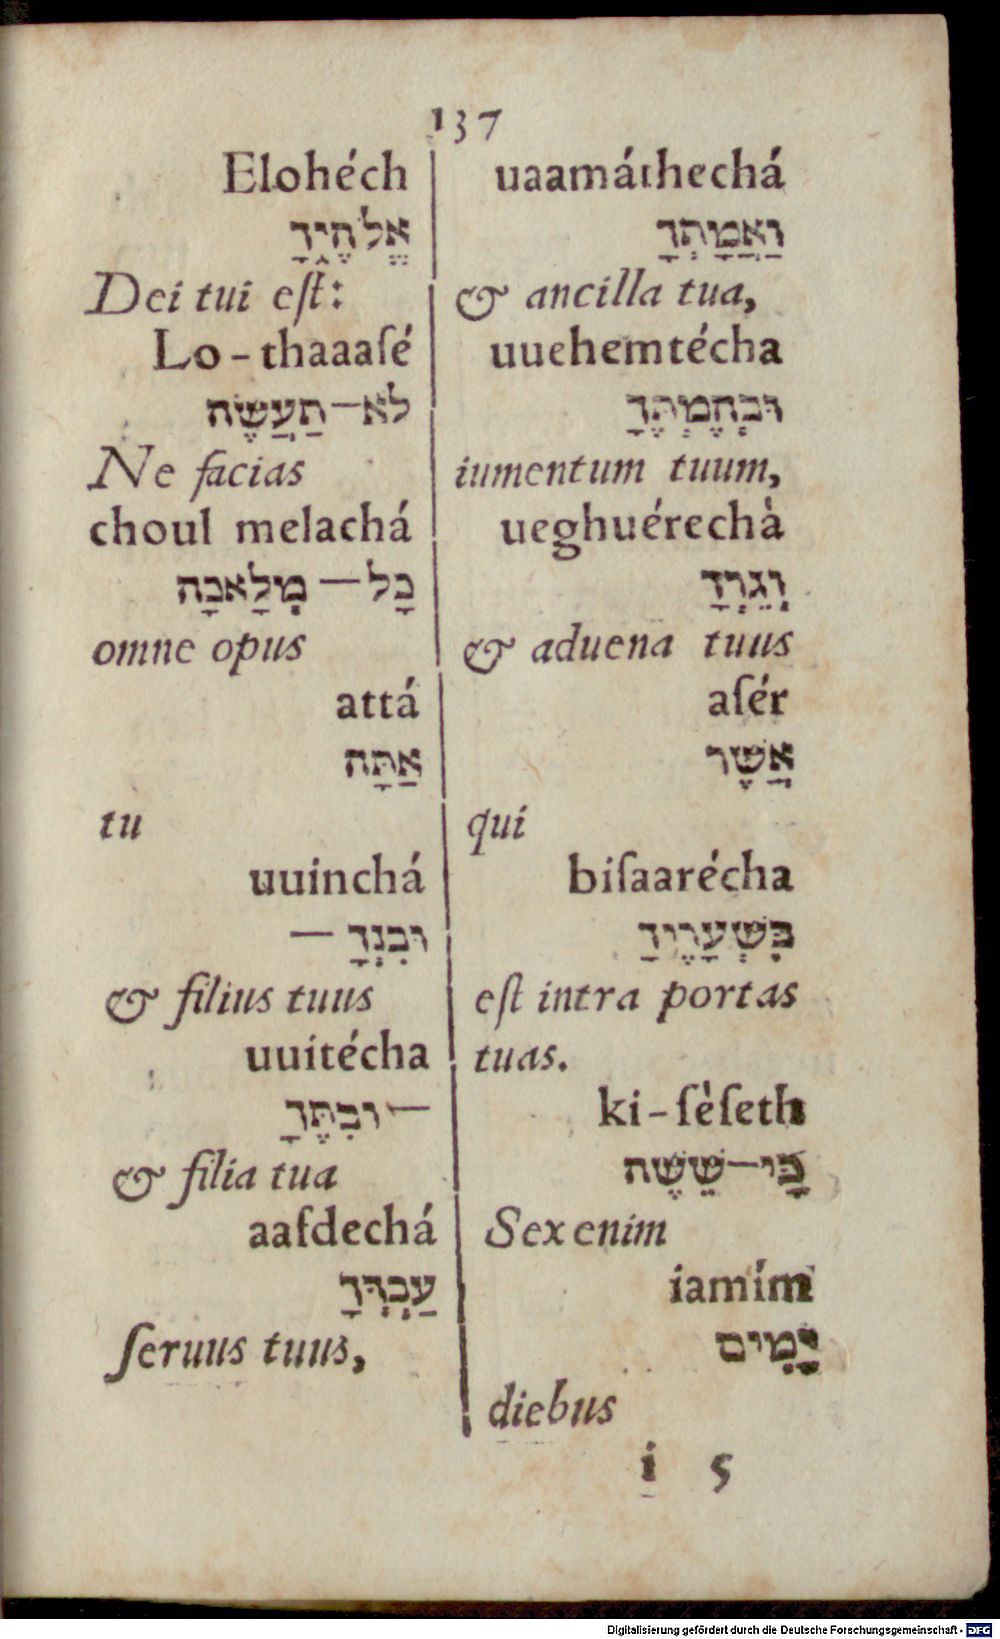 137
Elohéch
אֱלֹהֶיךָ
Dei tui eſt:
Lo-thaaaſé
לא־תַעֲשֶׂה
Ne facias
choul melachá
כָל־מְלָאכָה
omne opus
attá
אַתָּה
tu
uuinchá
וּבִנְךָ־
& filius tuus
uuitécha
־וּבִתֶּךָ
& filia tua
aafdechá
עַבְדְּךָ
ſeruus tuus,
uaamáthechá
וַאֲמָתְךָ
& ancilla tua,
uuehemtécha
וּבְהֶמְתֶּךָ
iumentum tuum,
ueghuérechà
וְגֵרְךָ
& aduena tuus
aſér
אֲשֶׁר
qui
biſaarécha
בִּשְׁעָרֶיךָ
eſt intra portas
tuas.
ki-ſèſeth
כִּי־שֵׁשֶׁת
Sex enim
iamím
יָמִים
diebus
i 5
Digitalisierung gefördert durch die Deutsche Forschungsgemeinschaft - DFG